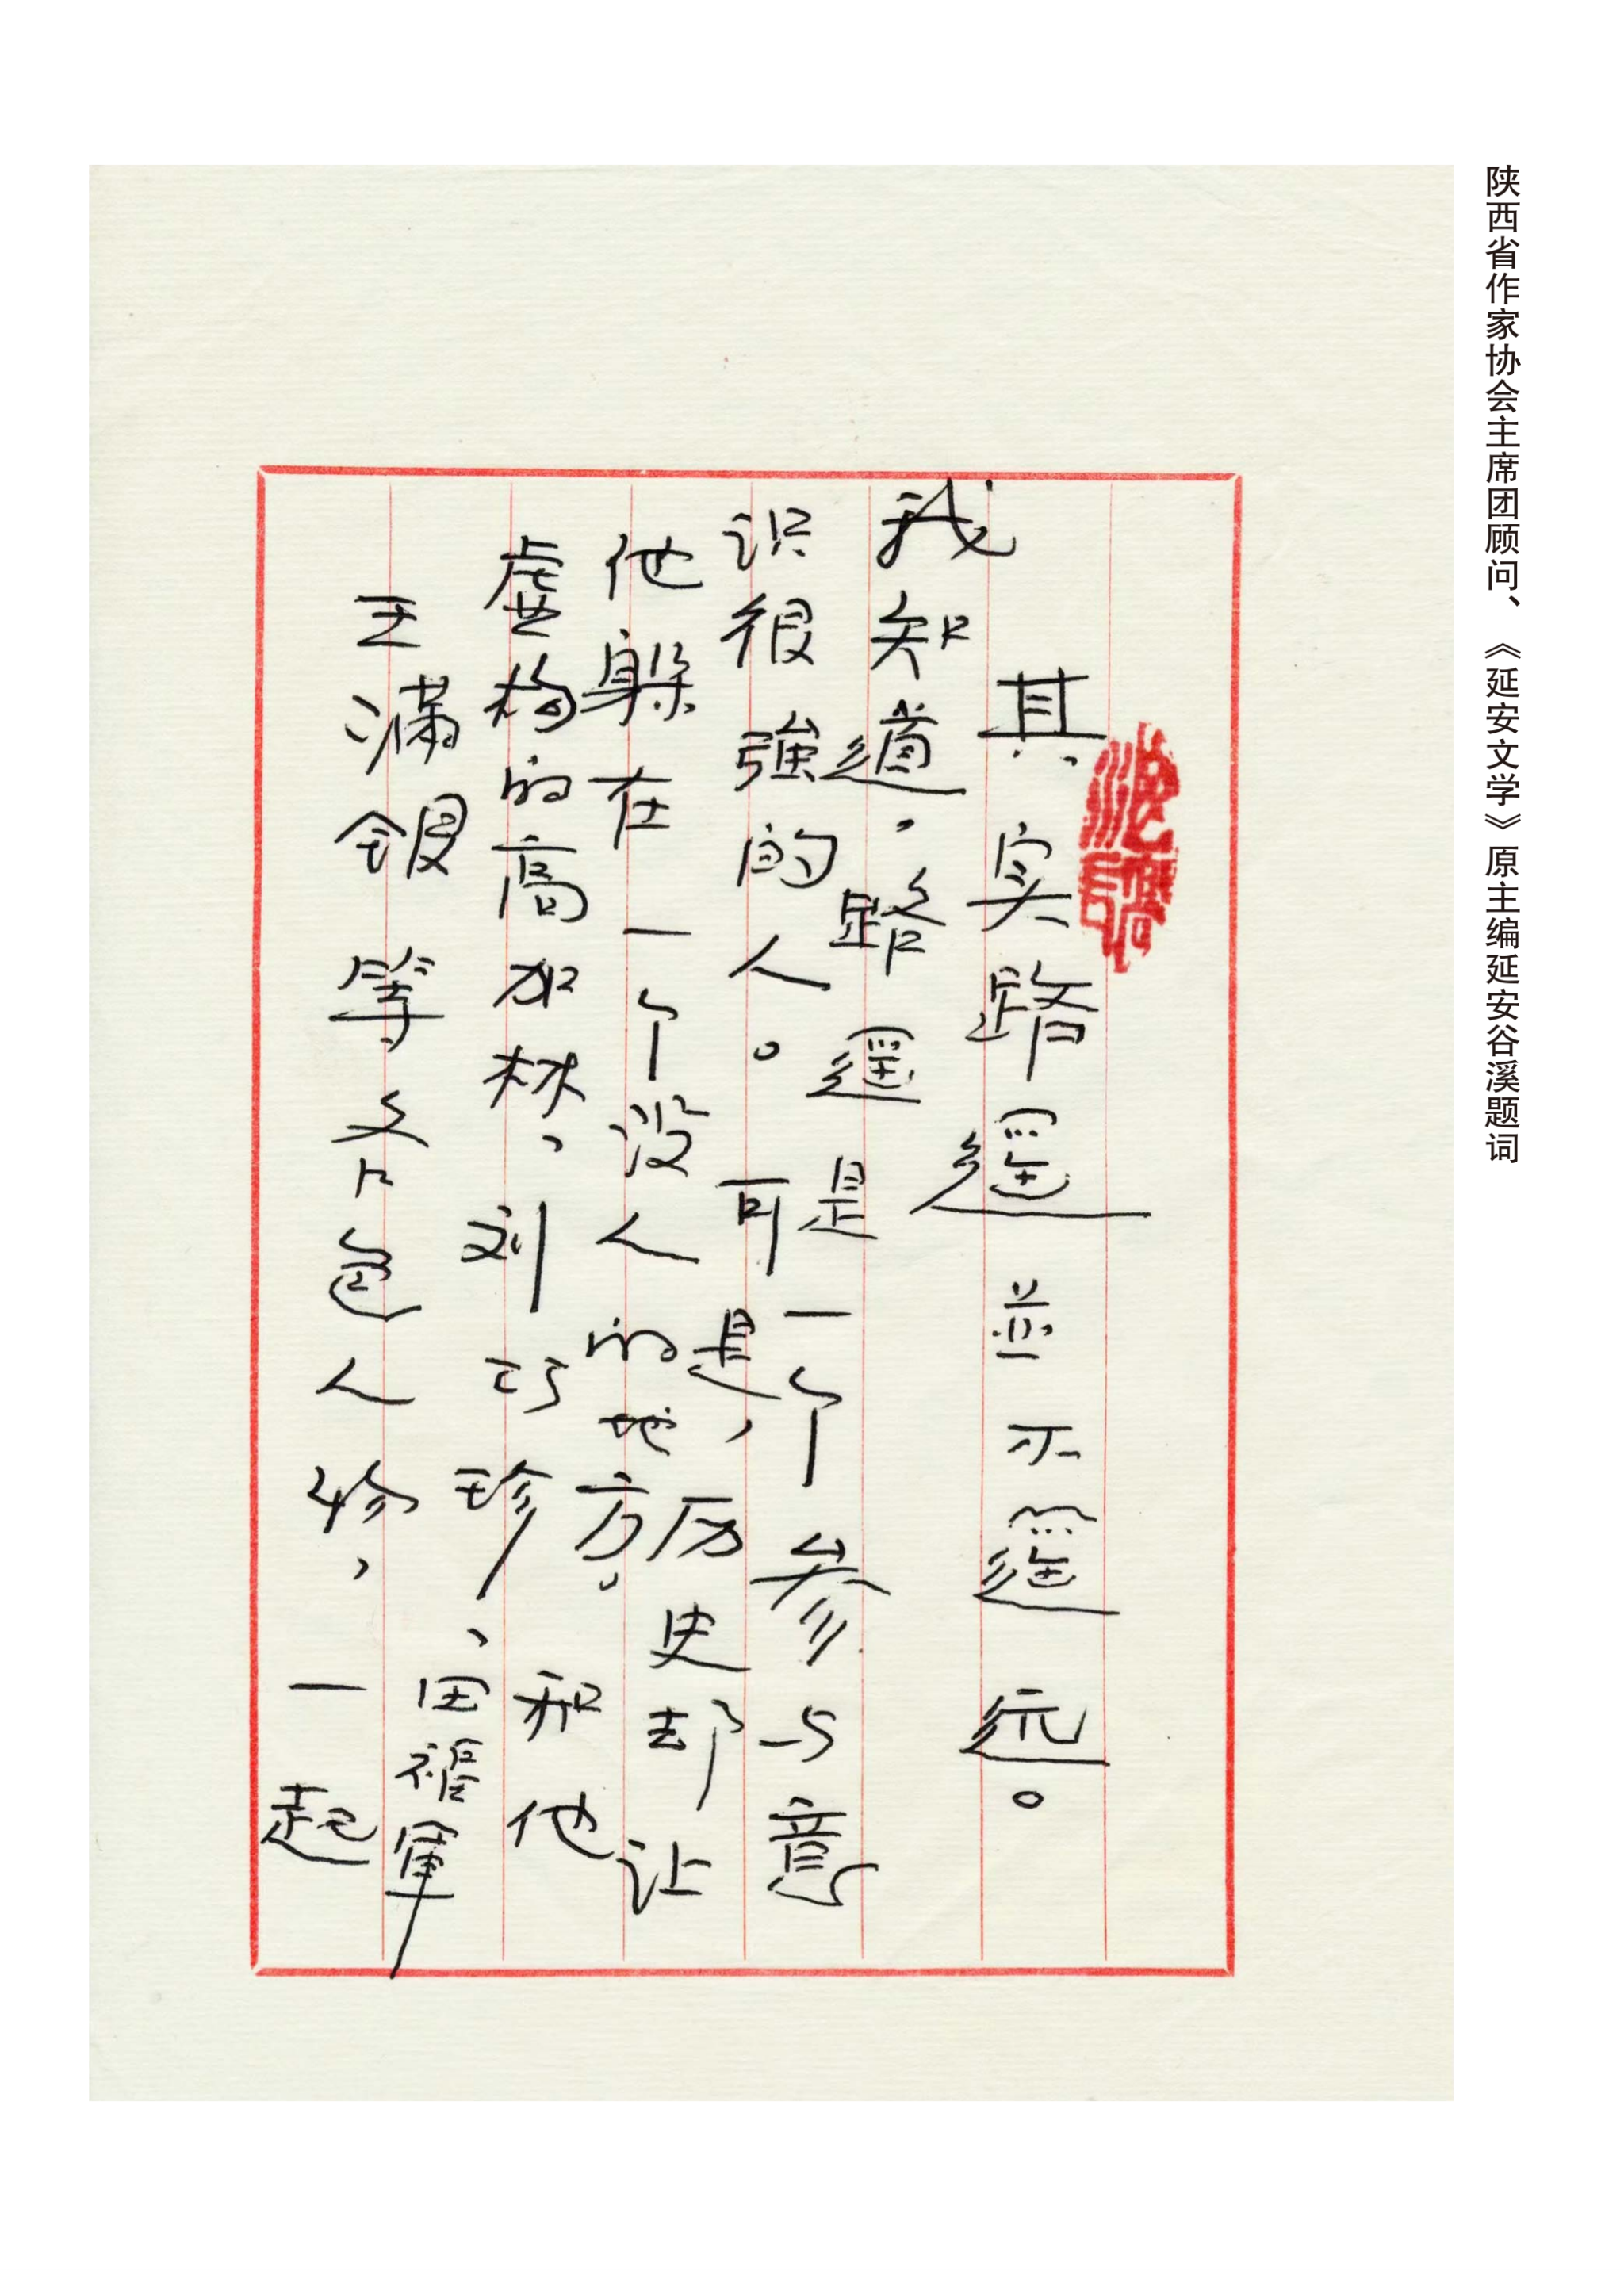 陕西省作家协会主席团顾问、《延安文学》原主编延安谷溪题词
其实路遥並不遥远。
我知道，路遥是一个参与意
识很強的人。可是，历史却让
他躲在一个没人的地方。和他
虚构的高加林、刘巧珍、田福軍
王满银等各色人物，一起